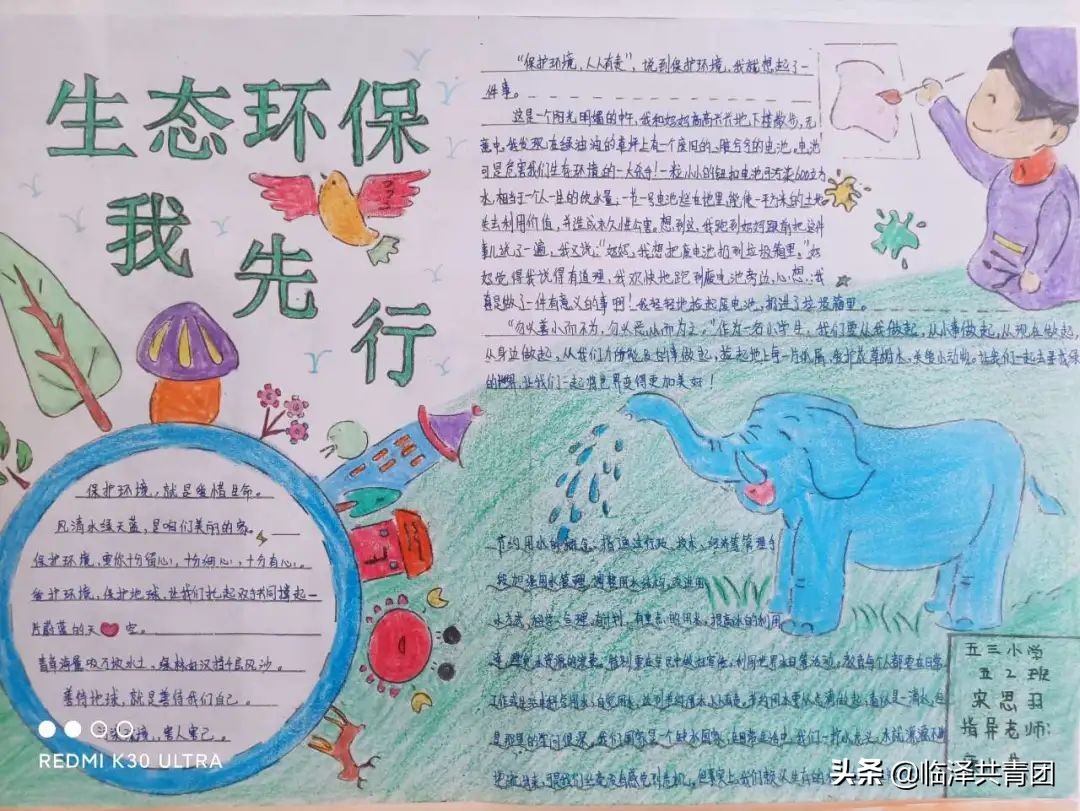 生态环保
我先行
"保护环境,人人有责",说到保护环境,我就想起了一
件事。
这是一个阳光明媚的中午,我和妈妈高高兴兴地下楼散步,无
意中,我发现在绿油油的草坪上有一个废旧的、脏兮兮的电池。电池
可是危害我们生存环境的一大杀手!一粒小小的钮扣电池可污染600立方
水,相当于一个人一生的饮水量,一节一号电池烂在地里,能使一平方米的土地
失去利用价值,并造成永久性公害。想到这,我跑到妈妈跟前把这件
事儿说了一遍,我又说:"妈妈,我想把废电池扔到垃圾箱里。"妈
妈觉得我说得有道理,我欢快地跑到废电池旁边,心想:我
真是做了一件有意义的事啊!我轻轻地捡起废电池,扔进了垃圾箱里。
"勿以善小而不为,勿以恶小而为之。"作为一名小学生,我们要从我做起,从小事做起,从现在做起,
从身边做起,从我们力所能及的事做起,捡起地上每一片纸屑,爱护花草树木,关爱小动物。让我们一起去
的世界,让我们一起将世界变得更加美好!
保护环境,就是爱惜生命。
风清水绿天蓝,是咱们美丽的家。
保护环境,要你十分留心,十分细心,十分有心。
爱护环境,保护地球,让我们托起双手共同撑起一
片蔚蓝的天空。
青草海量吸不坡水土,森林好汉挡千层风沙。
善待地球,就是善待我们自己。
环境,害人害己。
节约用水的概念:指通过行政、技术、经济等管理手
段加强用水管理,调整用水结构,改进用
水方式,科学、合理、有计划、有重点的用水,提高水的利用
率,避免水资源的浪费。特别要在全民中做好宣传,利用世界水日等活动,教育每个人都要在日常
工作或生活中科学用水,自觉用水,达到节约用水,人人有责。节约用水要从点滴做起,
我们国家是一个缺水国家,在日常生活中,我们一拧水龙头,水就源源不断
地流出来,可能我们丝毫没有感觉到危机,但事实上,我们赖以生存的
五三小学
五2班
宋思羽
指导老师:
REDMI K30 ULTRA
头条 @临泽共青团